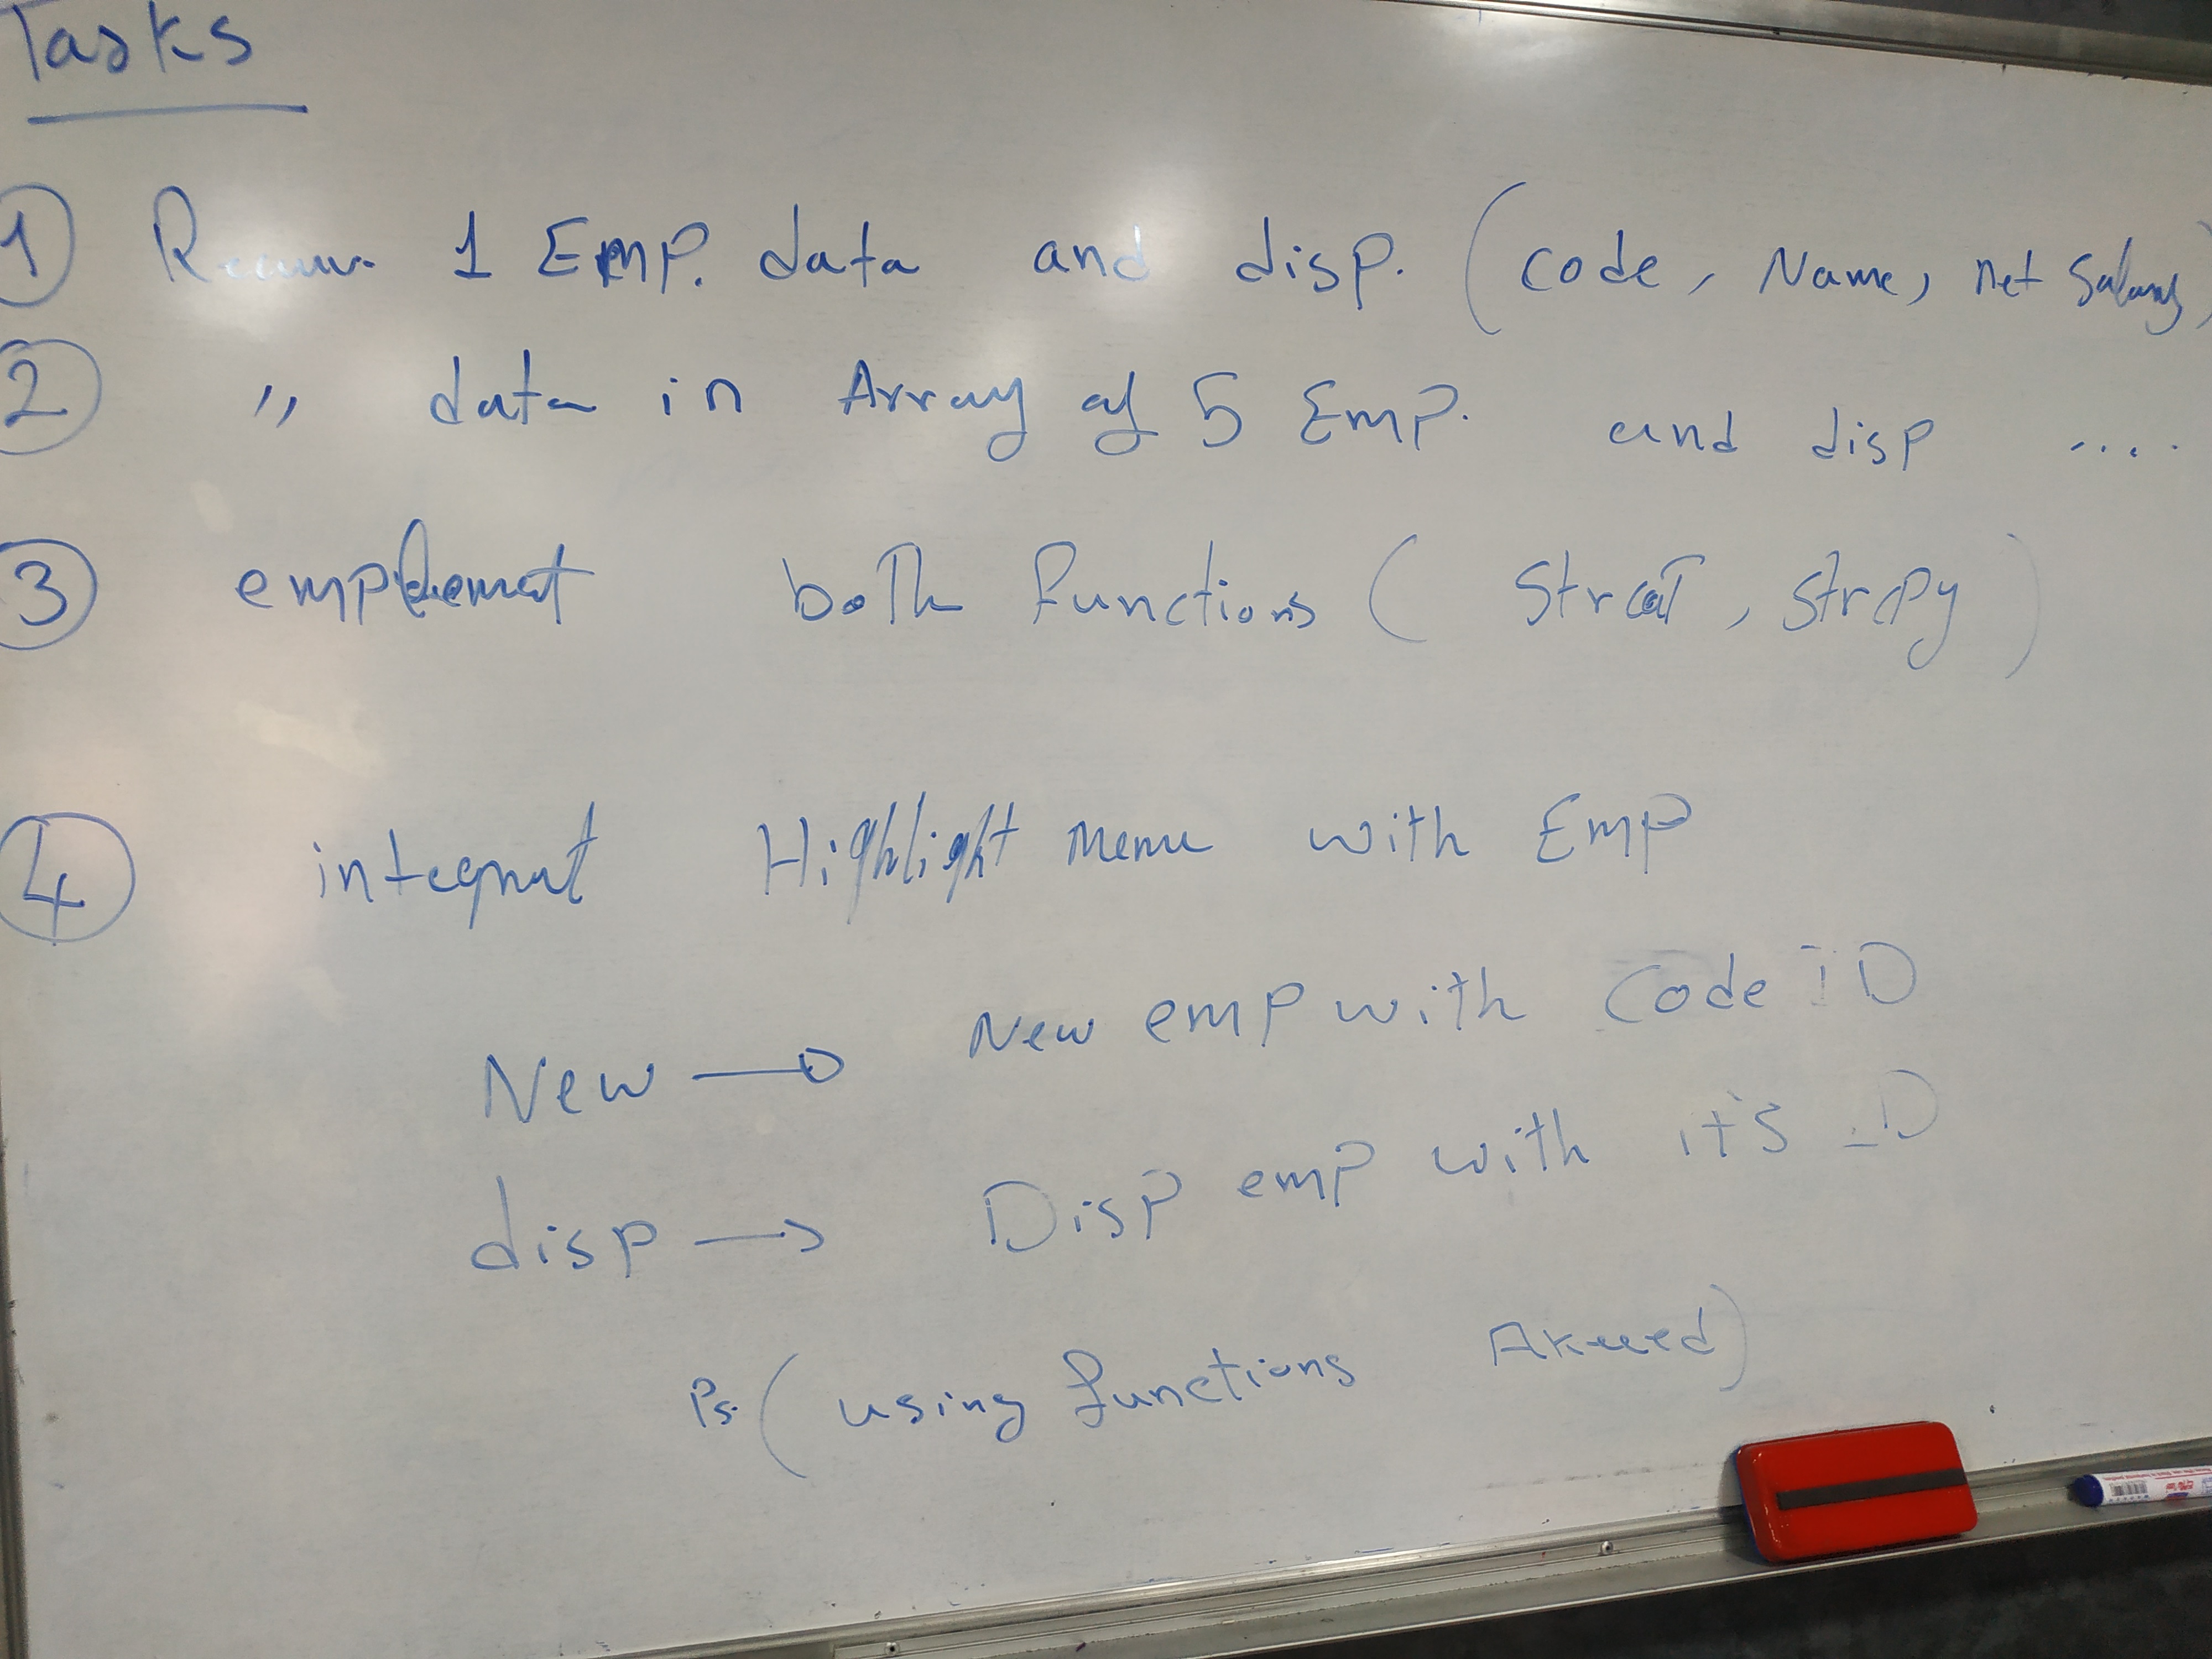 Tasks
1 1 Emp. data and disp. (code, Name, net Salary)
2 " data in Array of 5 Emp. and disp ....
3 both functions ( Strcat, Strcpy )
4 Highlight Menu with Emp
New → New emp with Code iD
disp → Disp emp with it's ID
Ps. ( using functions )